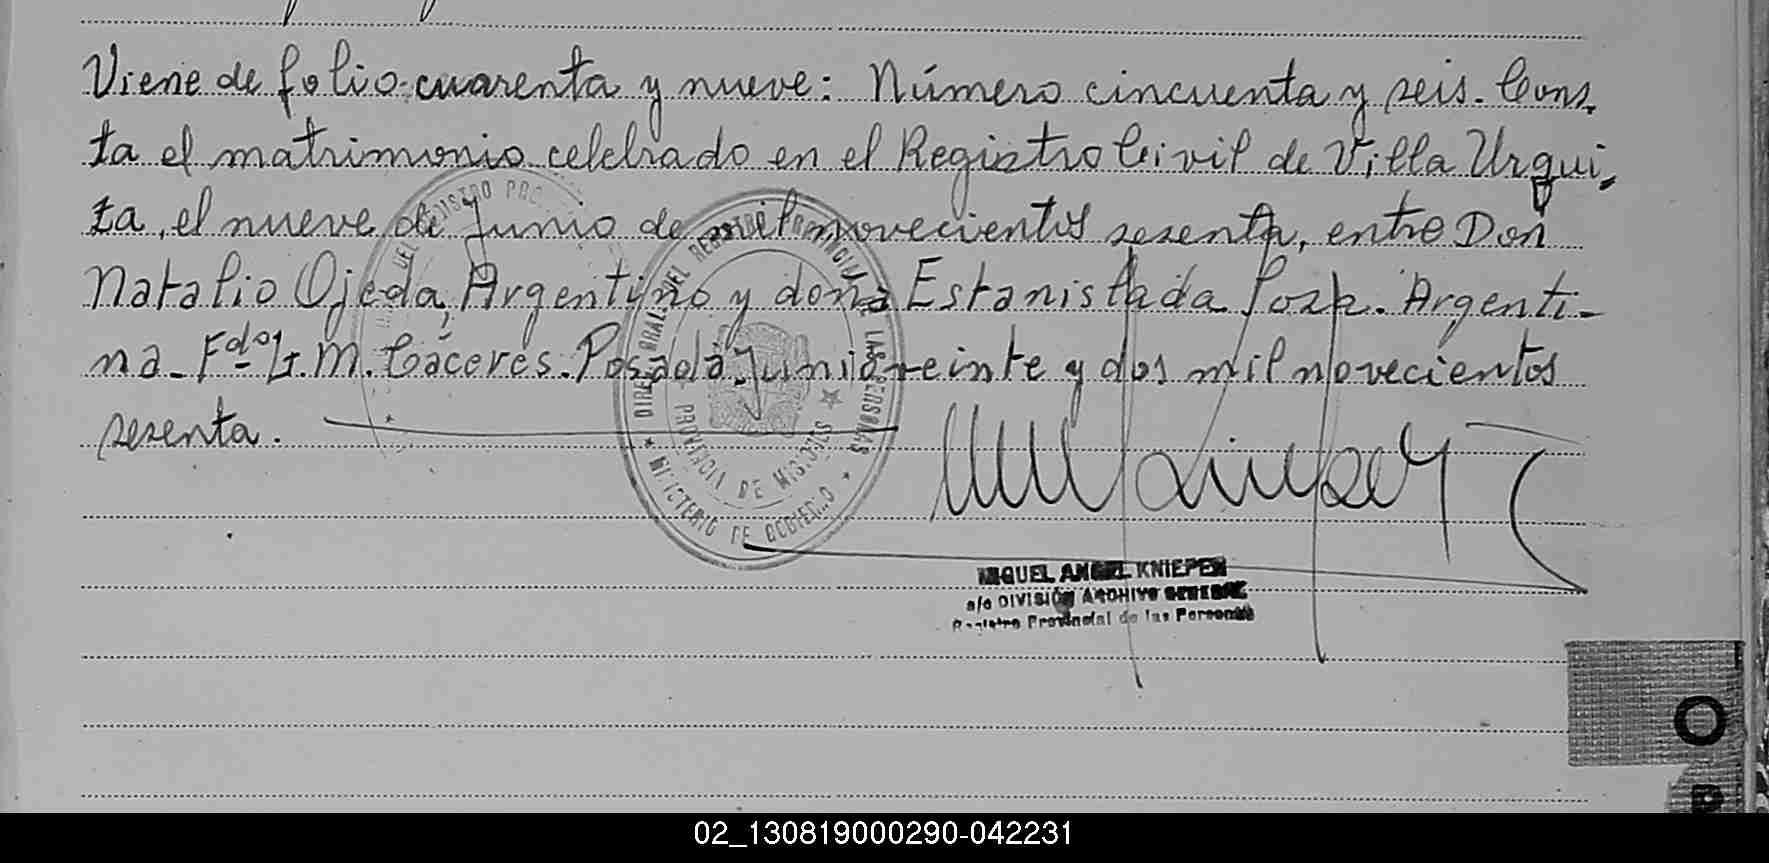 Viene de folio cuarenta y nueve: Número cincuenta y seis. Cons.
ta el matrimonio celebrado en el Registro Civil de Villa Urqui,
za, el nueve de Junio de mil novecientos sesenta, entre Don
Natalio Ojeda, Argentino y doña Estanislada Argenti-
na_ Fdo M. Cáceres. Posadas, Junio veinte y dos mil novecientos
sesenta.
DEL REGISTRO PROVINCIAL DE LAS PERSONAS
PROVINCIA DE MISIONES
MINISTERIO DE GOBIERNO
MIGUEL ANGEL KNIEPER
a/c DIVISIÓN ARCHIVO GENERAL
Registro Provincial de las Personas
O
02_130819000290-042231